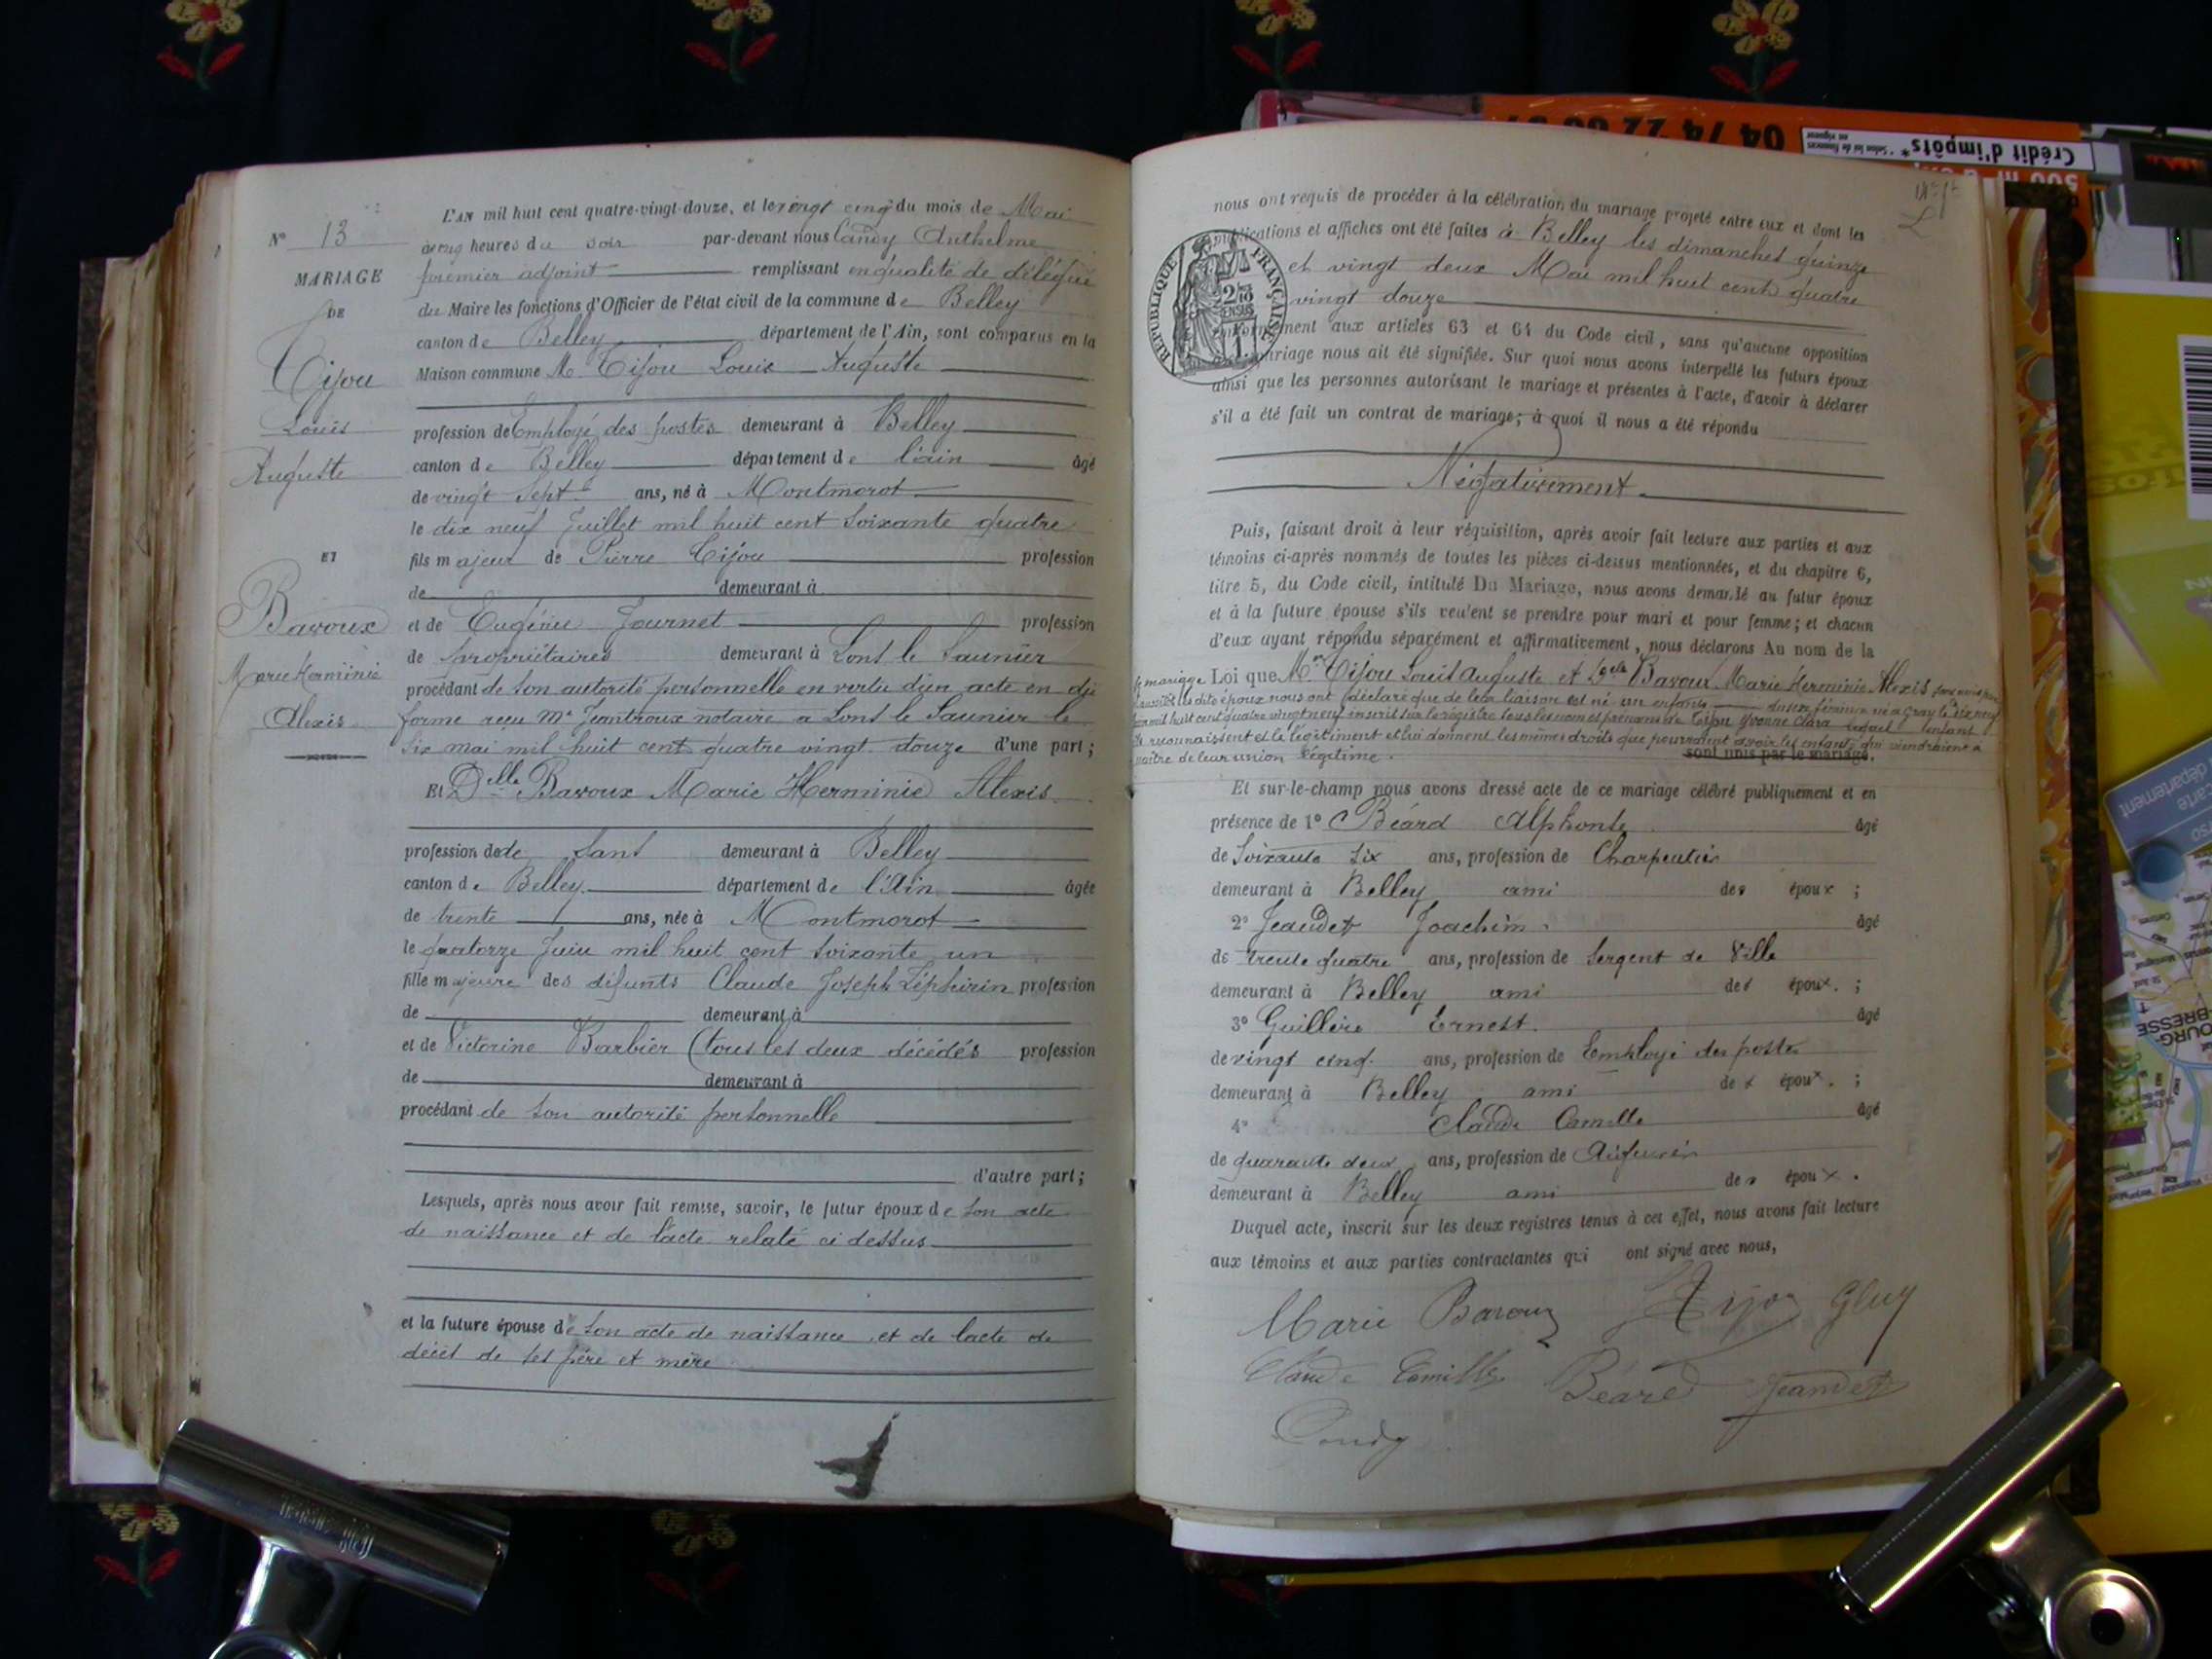 N° 13
MARIAGE
DE
Tijou
Louis
Auguste
ET
Bavoux
Marie Herminie
Alexis
L'AN mil huit cent quatre-vingt-douze, et le vingt cinq du mois de Mai
à cinq heures du soir par-devant nous Candy Anthelme
premier adjoint remplissant en qualité de délégué
du Maire les fonctions d'Officier de l'état civil de la commune de Belley
canton de Belley département de l'Ain, sont comparus en la
Maison commune M. Tijou Louis Auguste
profession de Employé des postes demeurant à Belley
canton de Belley département de l'ain âgé
de vingt Sept ans, né à Montmorot
le dix neuf Juillet mil huit cent soixante quatre
fils majeur de Pierre Tijou profession
de demeurant à
et de Eugénie Journet profession
de propriétaires demeurant à Lons le Saunier
procédant de son autorité personnelle en vertu d'un acte en due
forme reçu Me notaire à Lons le Saunier le
six mai mil huit cent quatre vingt douze d'une part;
Et Delle Bavoux Marie Herminie Alexis
profession de de sans demeurant à Belley
canton de Belley département de l'Ain âgée
de trente ans, née à Montmorot
le quatorze Juin mil huit cent soixante un
fille majeure des défunts Claude Joseph Zéphirin profession
de demeurant à
et de Victorine Barbier (tous les deux décédés profession
de demeurant à
procédant de son autorité personnelle
d'autre part;
Lesquels, après nous avoir fait remise, savoir, le futur époux de son acte
de naissance et de l'acte relaté ci dessus
et la future épouse de son acte de naissance et de l'acte de
décès de ses père et mère
nous ont requis de procéder à la célébration du mariage projeté entre eux et dont les
publications et affiches ont été faites à Belley les dimanches quinze
et vingt deux Mai mil huit cent quatre
vingt douze
conformément aux articles 63 et 64 du Code civil, sans qu'aucune opposition
mariage nous ait été signifiée. Sur quoi nous avons interpellé les futurs époux
ainsi que les personnes autorisant le mariage et présentes à l'acte, d'avoir à déclarer
s'il a été fait un contrat de mariage; à quoi il nous a été répondu
Négativement
RÉPUBLIQUE FRANÇAISE
Puis, faisant droit à leur réquisition, après avoir fait lecture aux parties et aux
témoins ci-après nommés de toutes les pièces ci-dessus mentionnées, et du chapitre 6,
titre 5, du Code civil, intitulé Du Mariage, nous avons demandé au futur époux
et à la future épouse s'ils veulent se prendre pour mari et pour femme; et chacun
d'eux ayant répondu séparément et affirmativement, nous déclarons Au nom de la
le mariage Loi que Mr Tijou Louis Auguste et Delle Bavoux Marie Herminie Alexis sont unis par
aussitôt les dits époux nous ont déclaré que de leur liaison est né un enfant du sexe féminin né à Gray le dix neuf
mil huit cent quatre vingt neuf inscrit sur le registre sous les nom et prénoms de Tijou Yvonne Clara lequel enfant
ils reconnaissent et le légitiment et lui donnent les mêmes droits que pourraient avoir les enfants qui viendraient à
naître de leur union légitime. sont unis par le mariage.
Et sur-le-champ nous avons dressé acte de ce mariage célébré publiquement et en
présence de 1° Béard Alphonse âgé
de Soixante six ans, profession de Charpentier
demeurant à Belley ami des époux ;
2° Jeandet Joachim âgé
de trente quatre ans, profession de Sergent de Ville
demeurant à Belley ami des époux. ;
3° Ernest. âgé
de vingt cinq ans, profession de Employé des postes
demeurant à Belley ami des époux. ;
4° Claude Camille âgé
de quarante deux ans, profession de
demeurant à Belley ami des époux.
Duquel acte, inscrit sur les deux registres tenus à cet effet, nous avons fait lecture
aux témoins et aux parties contractantes qui ont signé avec nous,
Marie Bavoux Tijou
Claude Camille Béard Jeandet
Candy
04 74 22
Crédit d'impôts*